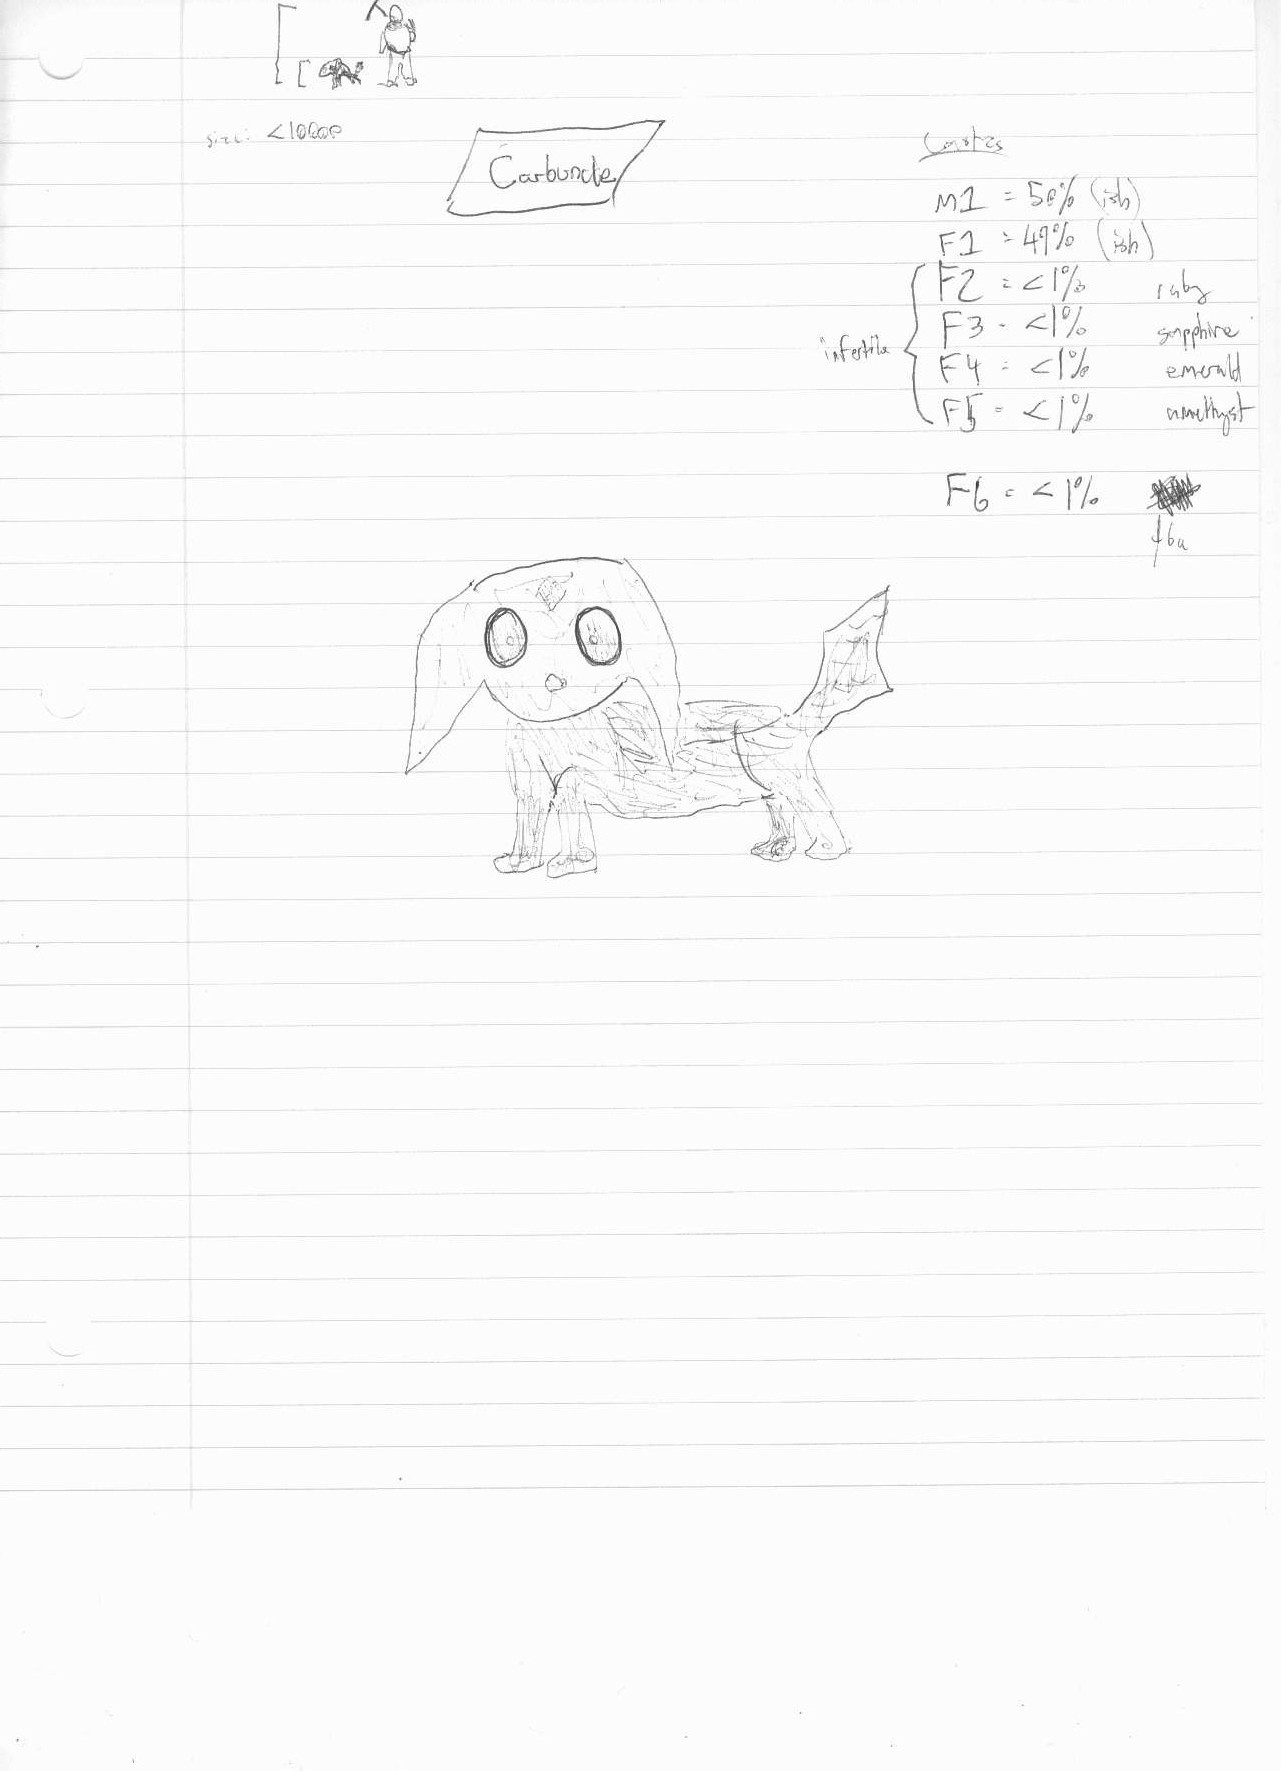 size: <10000
Carbuncle
Castes
M1 = 50% (ish)
F1 = 49% (ish)
infertile
F2 = <1% ruby
F3 - <1% sapphire
F4 = <1% emerald
F5 = <1% amethyst
F6 = <1%
tba